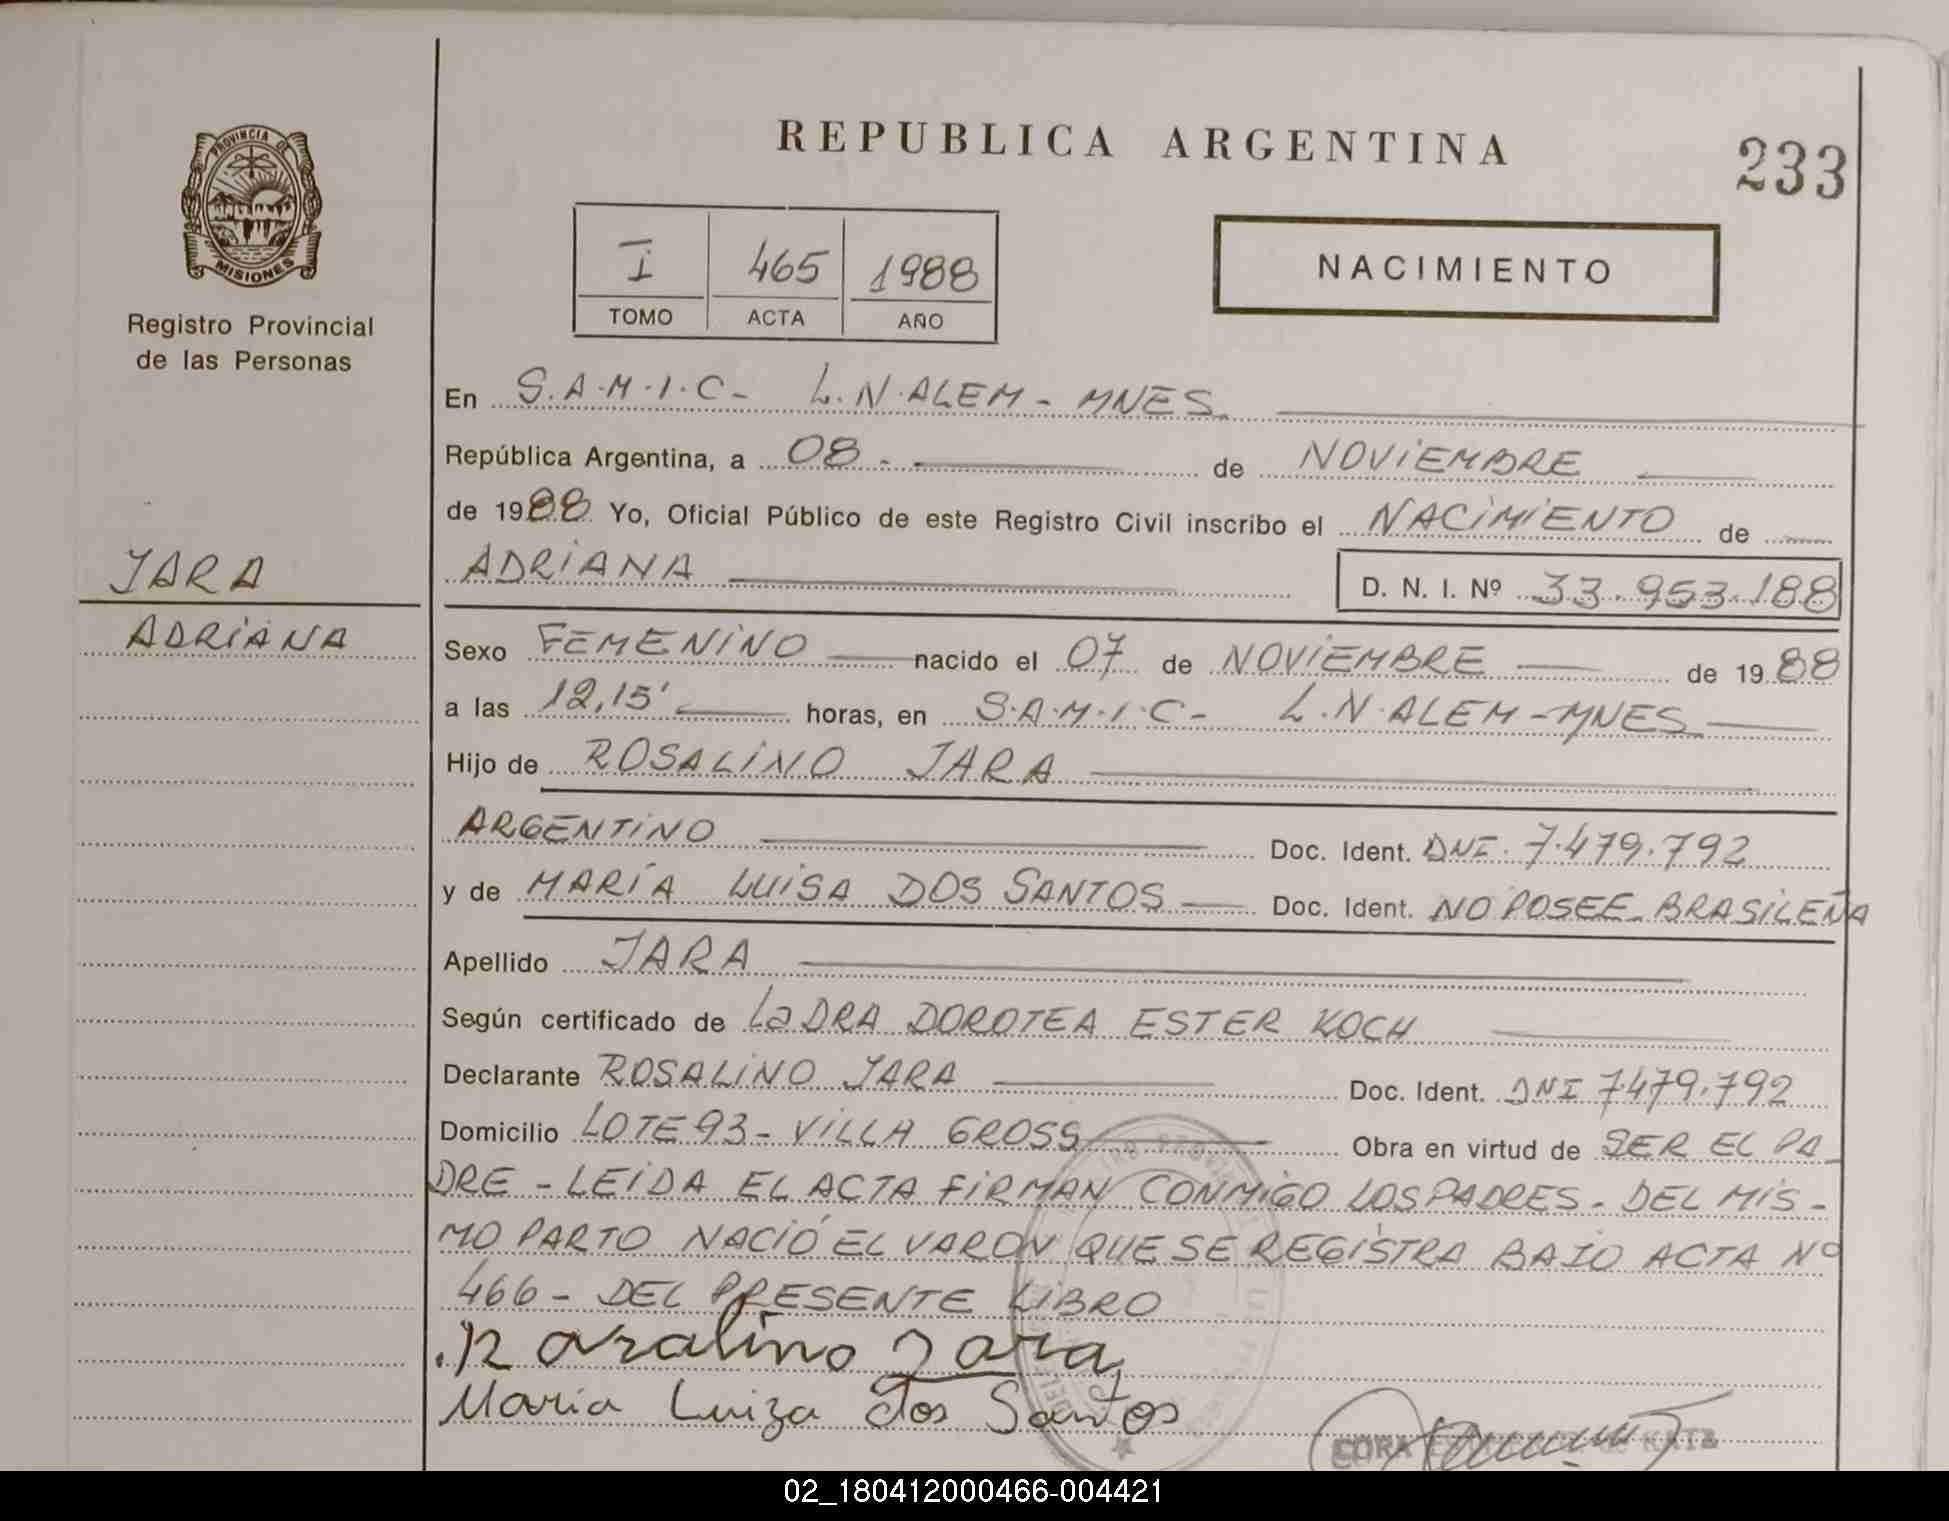 REPUBLICA ARGENTINA
233
PROVINCIA DE
MISIONES
Registro Provincial
de las Personas
I 465 1988
TOMO ACTA AÑO
NACIMIENTO
En S.A.M.I.C- L.N.ALEM - MNES.
República Argentina, a 08.- de NOViEMBRE
de 1988 Yo, Oficial Público de este Registro Civil inscribo el NACiMiENTO de
JARA
ADRiANA
ADRiANA D. N. I. Nº 33.953.188
Sexo FEMENiNO nacido el 07 de NOViEMBRE de 1988
a las 12,15' horas, en S.A.M.I.C- L.N.ALEM-MNES
Hijo de ROSALiNO JARA
ARGENTiNO Doc. Ident. DNI. 7.479.792
y de MARÍA LUiSA DOS SANTOS Doc. Ident. NO POSEE. BRASiLEÑA
Apellido JARA
Según certificado de La DRA DOROTEA ESTER KOCH
Declarante ROSALiNO JARA Doc. Ident. DNI 7.479.792
Domicilio LOTE 93- ViLLA GROSS Obra en virtud de SER EL PA-
DRE - LEiDA EL ACTA FiRMAN CONMiGO LOS PADRES. DEL MiS-
MO PARTO NACiÓ EL VARON QUE SE REGiSTRA BAJO ACTA Nº
466- DEL PRESENTE LiBRO
Rozalino Jara
Maria Luiza dos Santos
CORA KATZ
02_180412000466-004421